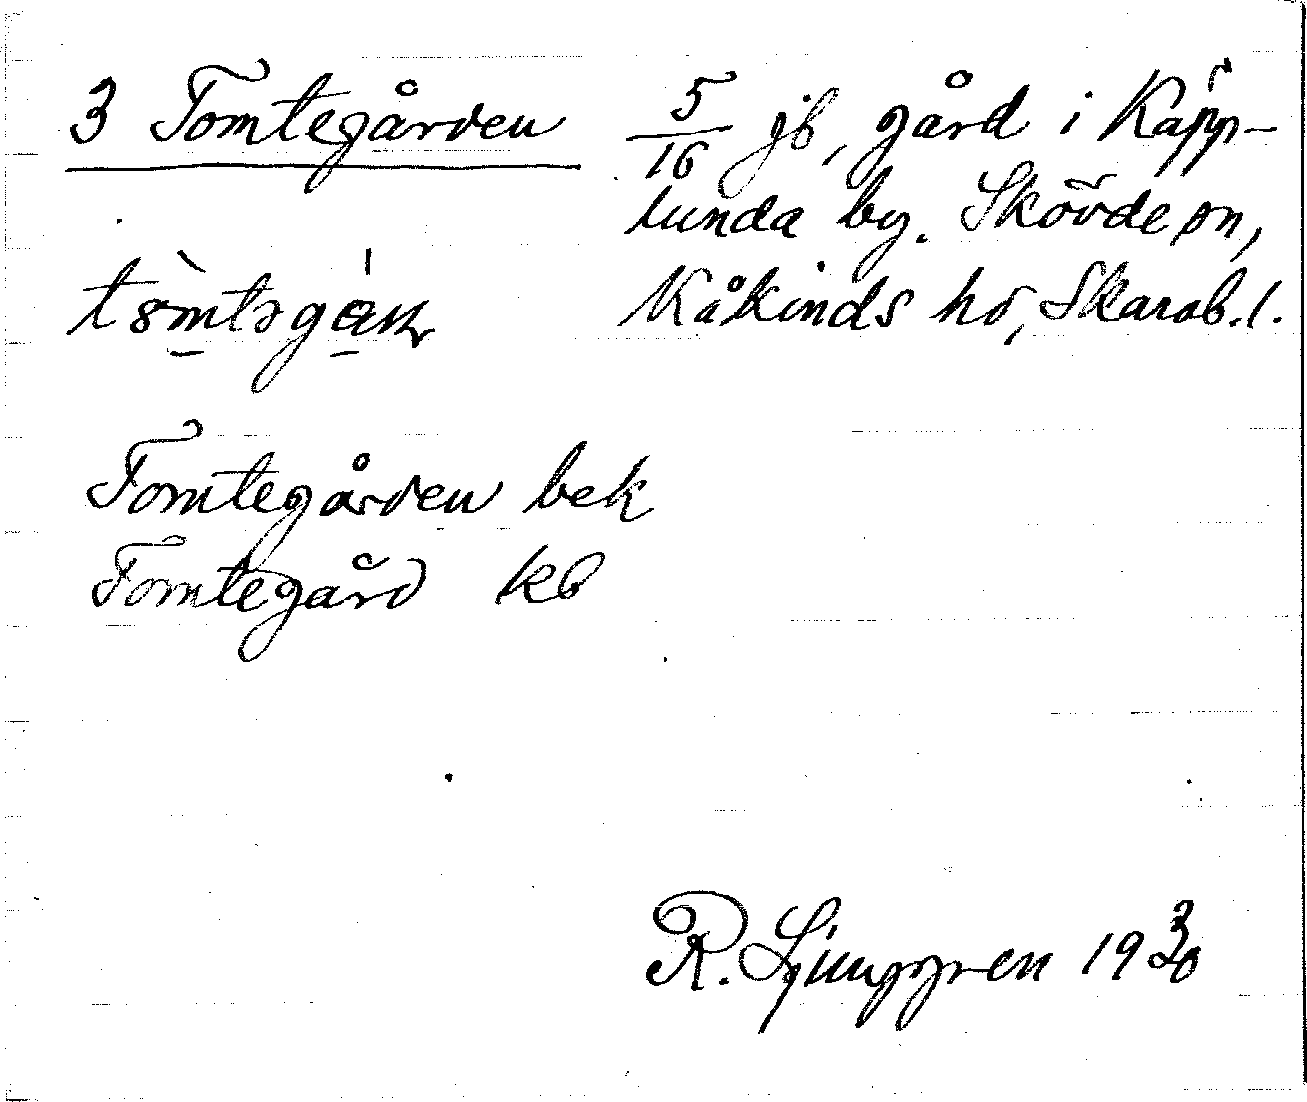 3 Tomtegården
5/16 jb, gård i Käpp-
lunda by. Skövde sn,
Kåkinds hd, Skarab. l.
Tomtegården bek
Tomtegård kb
R. Ljunggren 1930